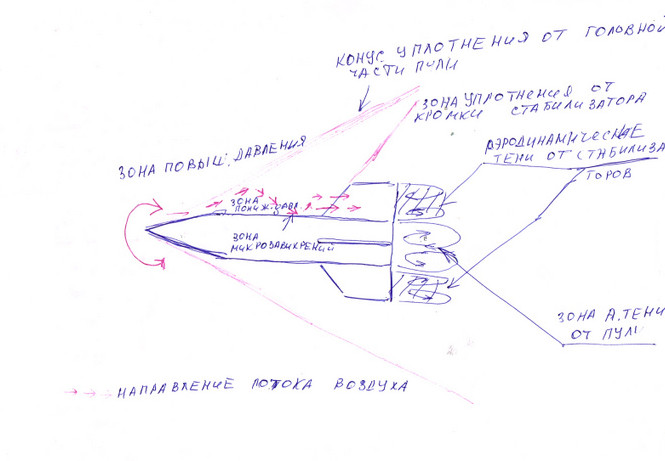 КОНУС УПЛОТНЕНИЯ ОТ ГОЛОВНОЙ
ЧАСТИ ПУЛИ
ЗОНА УПЛОТНЕНИЯ ОТ
КРОМКИ СТАБИЛИЗАТОРА
АЭРОДИНАМИЧЕСКИЕ
ТЕНИ ОТ СТАБИЛИЗА
ТОРОВ
ЗОНА ПОВЫШ. ДАВЛЕНИЯ
ЗОНА
ПОНИЖ. ДАВЛ.
ЗОНА
МИКРОЗАВИХРЕНИЙ
ЗОНА А. ТЕНИ
ОТ ПУЛИ
НАПРАВЛЕНИЕ ПОТОКА ВОЗДУХА